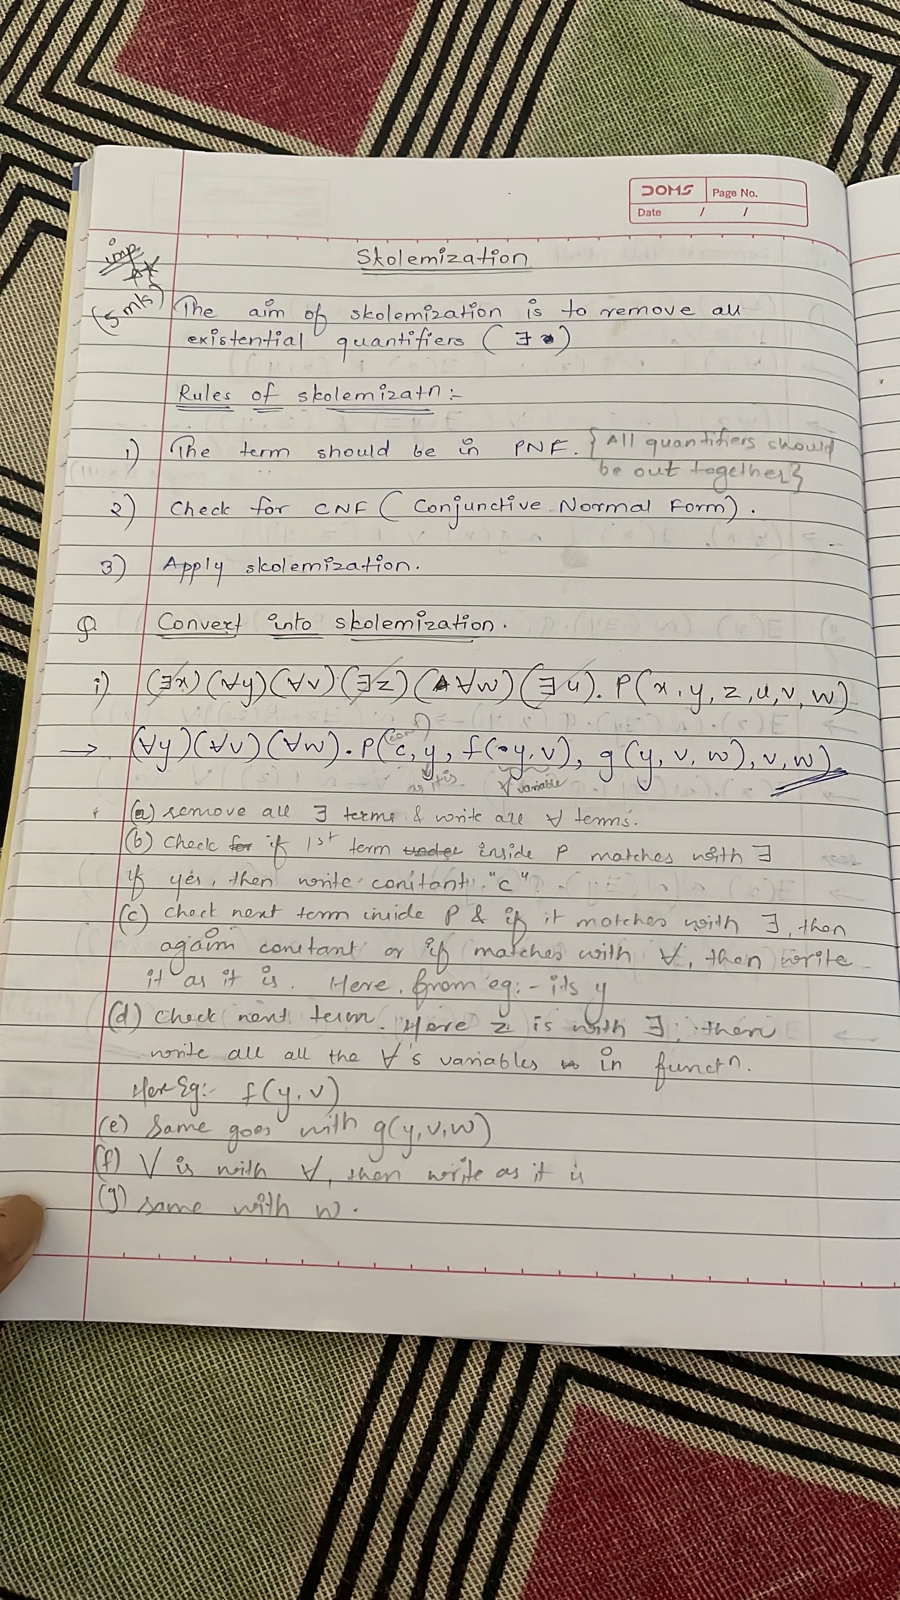 DOMS Page No.
Date / /
imp
(5 mks)
Skolemization
The aim of skolemization is to remove all
existential quantifiers (∃)
Rules of skolemizatn :-
1) The term should be in PNF. {All quantifiers should
be out together}
2) Check for CNF (Conjunctive Normal Form).
3) Apply skolemization.
Q Convert into skolemization.
i) (∃x)(∀y)(∀v)(∃z)(∀w)(∃u). P(x, y, z, u, v, w)
→ (∀y)(∀v)(∀w). P(c, y, f(y, v), g(y, v, w), v, w)
(con)
as it is ∀ variable
(a) remove all ∃ terms & write all ∀ terms.
(b) Check for if 1st term under inside P matches with ∃
if yes, then write conitant "c".
(c) check next term inside P & if it matches with ∃, then
again constant or if matches with ∀, then write
it as it is. Here, from eg:- its y
(d) check next term. Here z is with ∃, then
write all all the ∀'s variables in functn.
Here Eg:- f(y, v)
(e) Same goes with g(y, v, w)
(f) V is with ∀, then write as it is
(g) same with w.